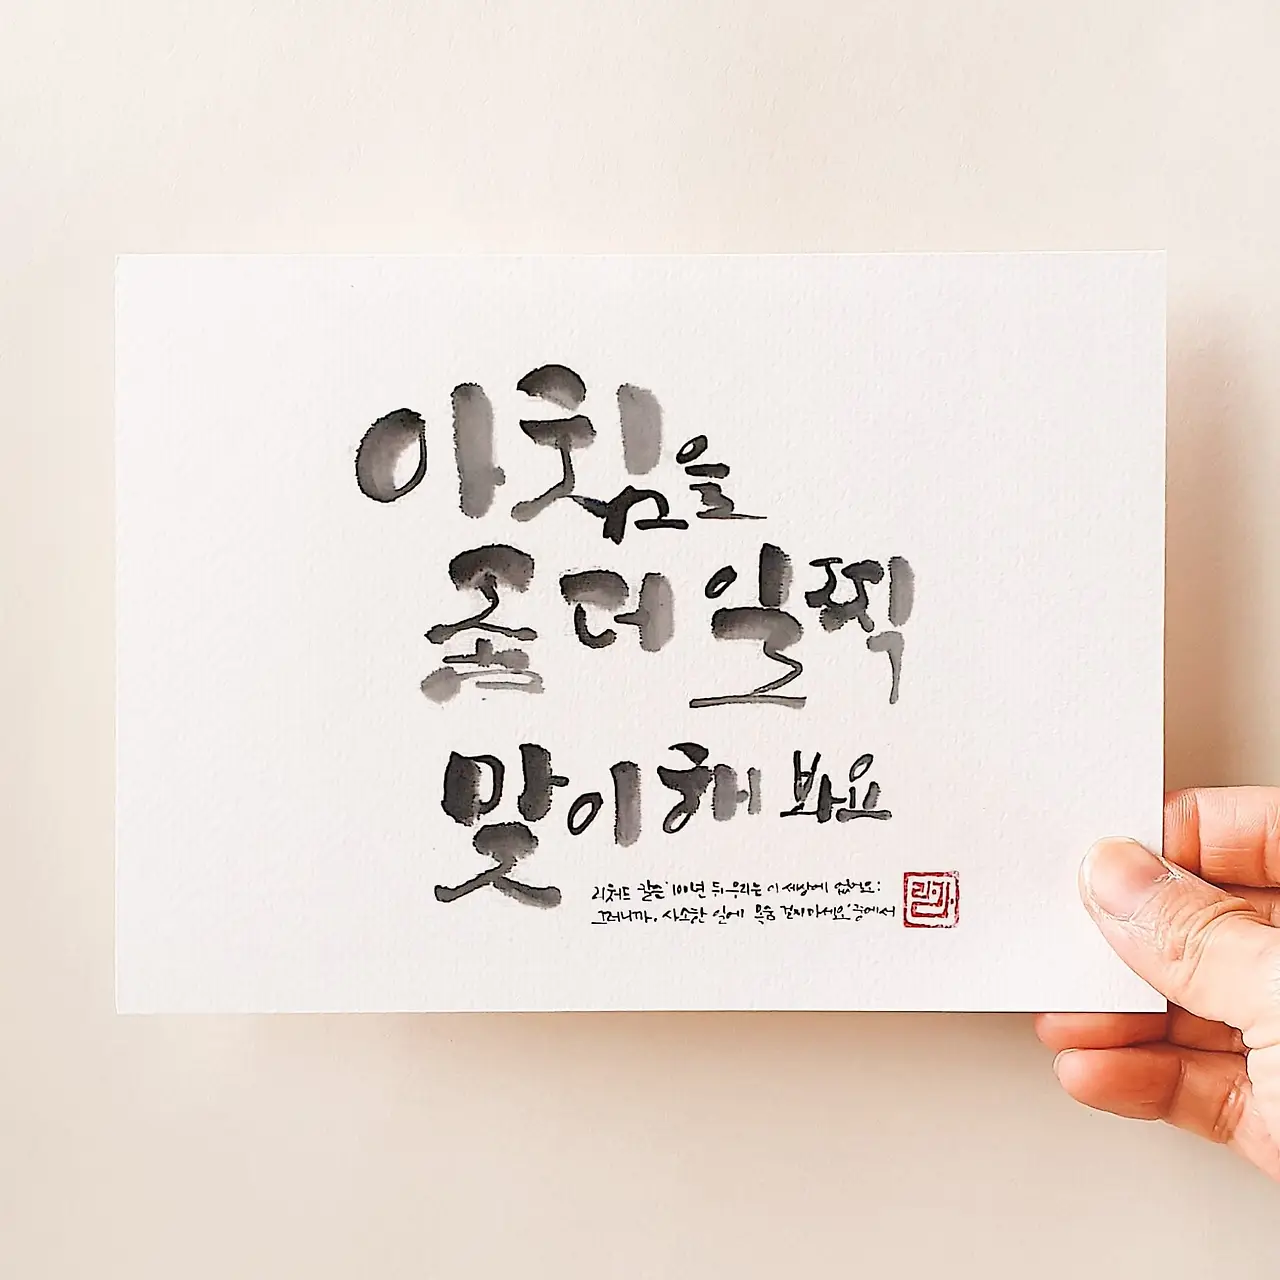 아침을
좀 더 일찍
맞이해 봐요
리처드 칼슨 '100년 뒤 우리는 이 세상에 없어요:
그러니까, 사소한 일에 목숨 걸지 마세요' 중에서